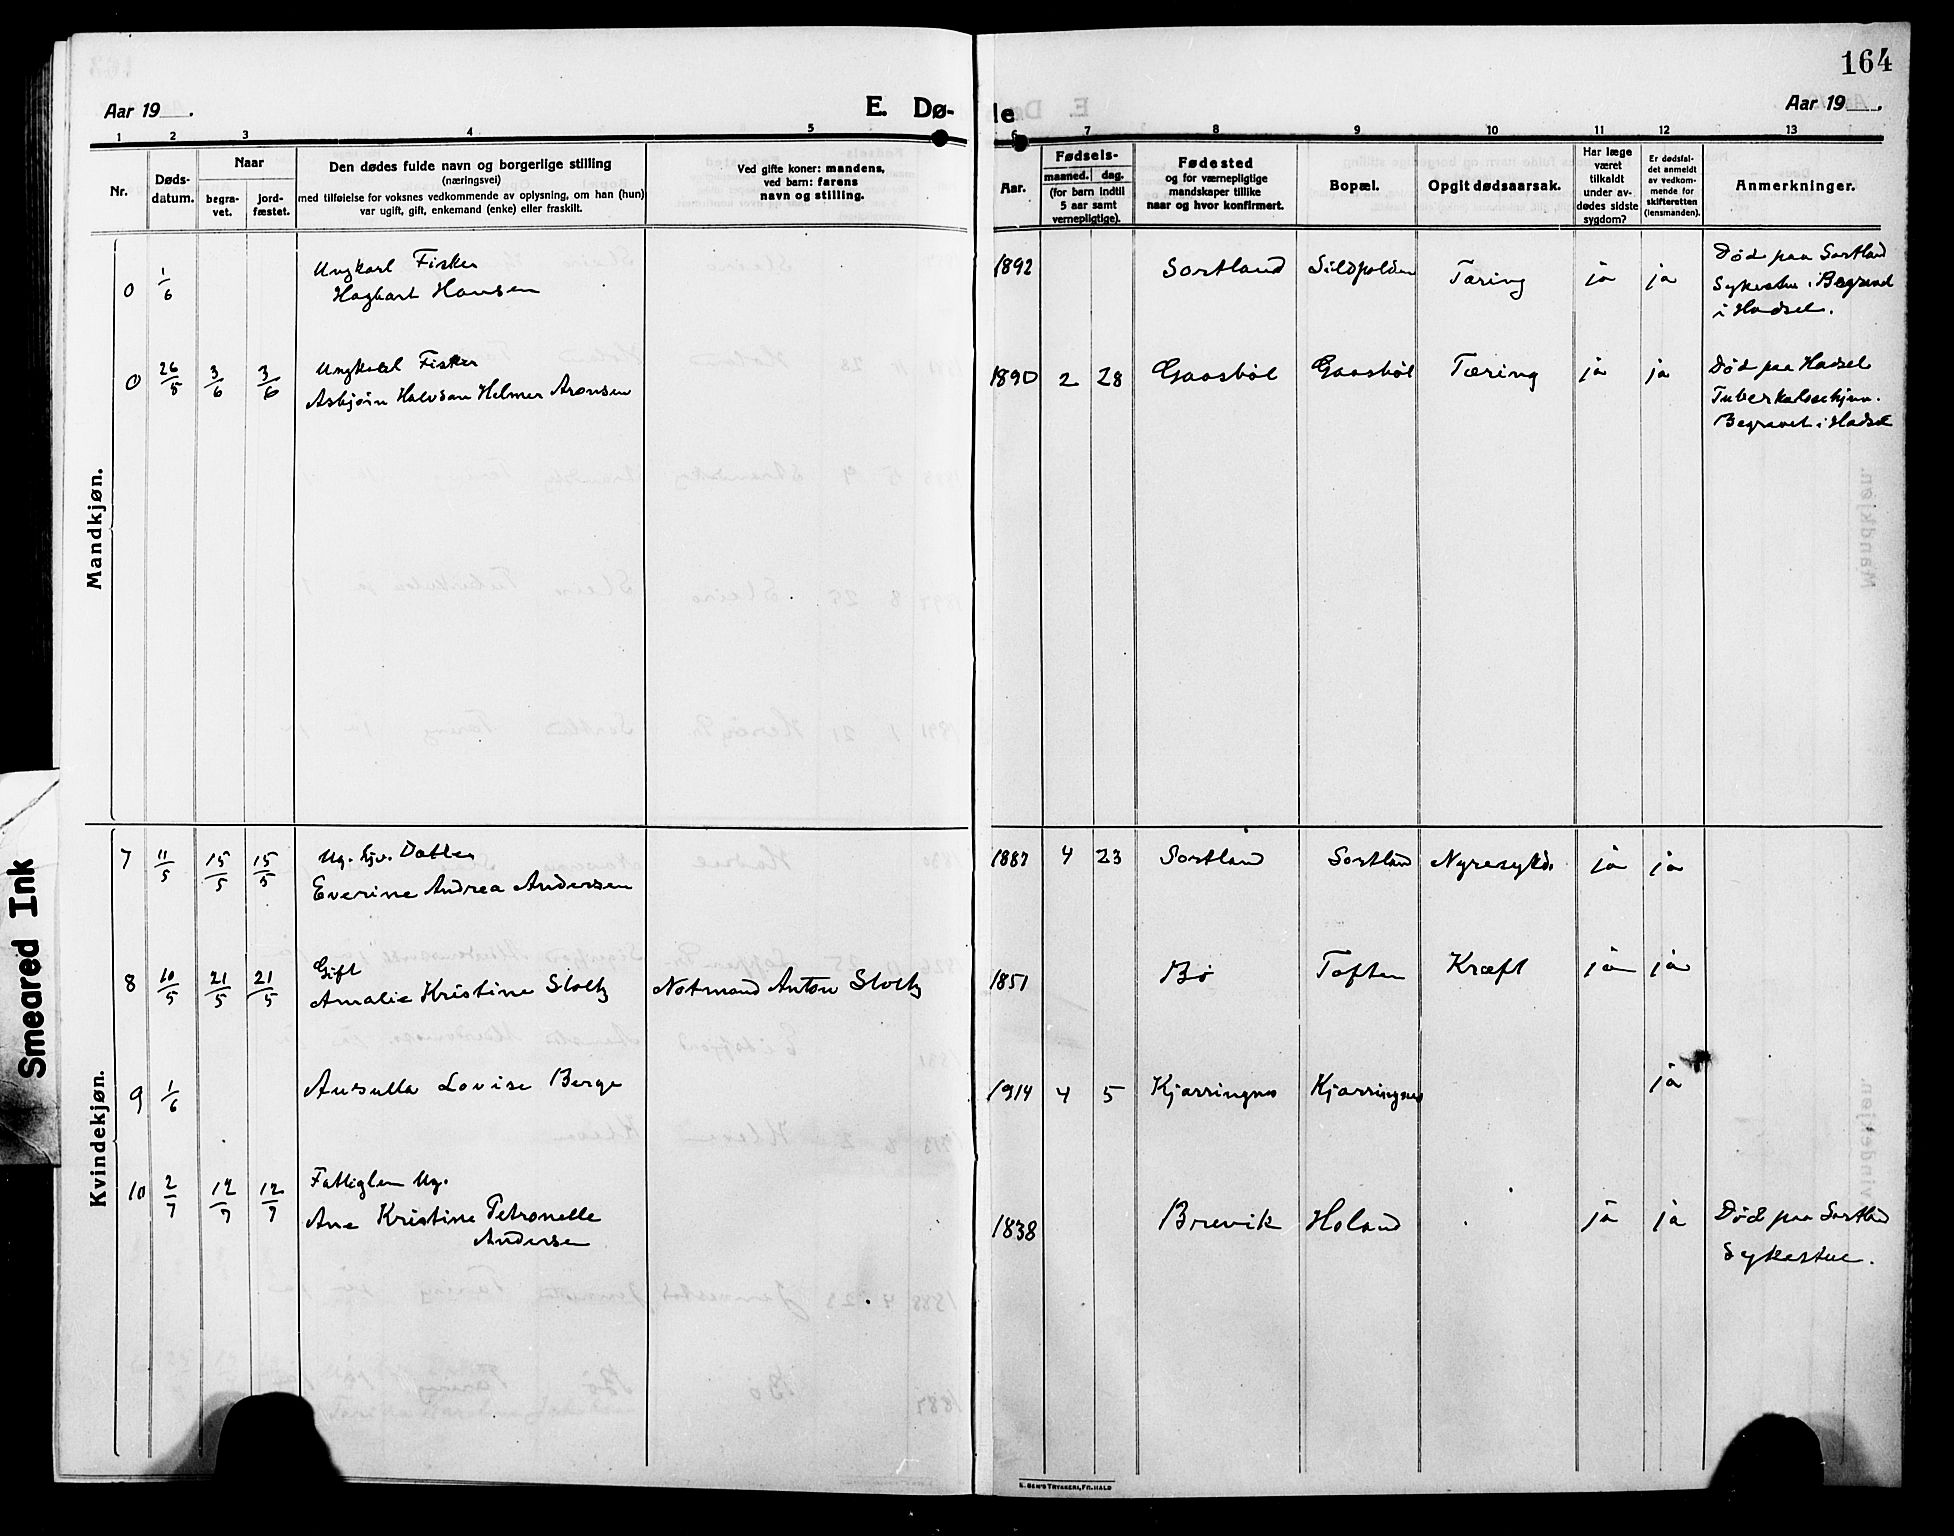 164
Aar 19 .
E. Dø-
de
Aar 19 .
1 2 3 4 5 6 7 8 9 10 11 12 13
Nr.
Døds-
datum.
Naar
begra-
vet.
jord-
fæstet.
Den dødes fulde navn og borgerlige stilling
(næringsvei)
med tilføielse for voksnes vedkommende av oplysning, om han (hun)
var ugift, gift, enkemand (enke) eller fraskilt.
Ved gifte koner: mandens,
ved barn: farens
navn og stilling.
Aar.
Fødsels-
maaned. dag.
(for barn indtil
5 aar samt
vernepligtige).
Fødested
og for værnepligtige
mandskaper tillike
naar og hvor konfirmert.
Bopæl.
Opgit dødsaarsak.
Har læge
været
tilkaldt
under av-
dødes sidste
sygdom?
Er dødsfal-
det anmeldt
av vedkom-
mende for
skifteretten
(lensmanden).
Anmerkninger.
Mandkjøn.
0 1/6 Ungkarl Fisker
Hagbart Hansen
1892 Sortland Sildpolden Tæring ja ja
Død paa Sortland
Sykestue. Begravet
i Hadsel.
0 26/5 3/6 3/6 Ungkarl Fisker
Asbjørn Halvson Helmer Aronsen
1890 2 28 Gaasbøl Gaasbøl Tæring ja ja
Død paa Hadsel
Tuberkulosehjem.
Begravet i Hadsel
Kvindekjøn.
7 11/5 15/5 15/5 Ug. Gv. Datter
Everine Andrea Andersen
1887 4 23 Sortland Sortland Nyresykd. ja ja
8 10/5 21/5 21/5 Gift
Amalie Kristine Stoltz Notmand Anton Stoltz
1851 Bø Toften Kræft ja ja
9 1/6 Ausulla Lovise Berge
1914 4 5 Kjærringnes Kjærringnes ja
10 2/7 12/7 12/7 Fattiglem Ug.
Ane Kristine Petronelle
Andersen
1838 Brevik Holand ja ja
Død paa Sortland
Sykestue.
Smeared Ink